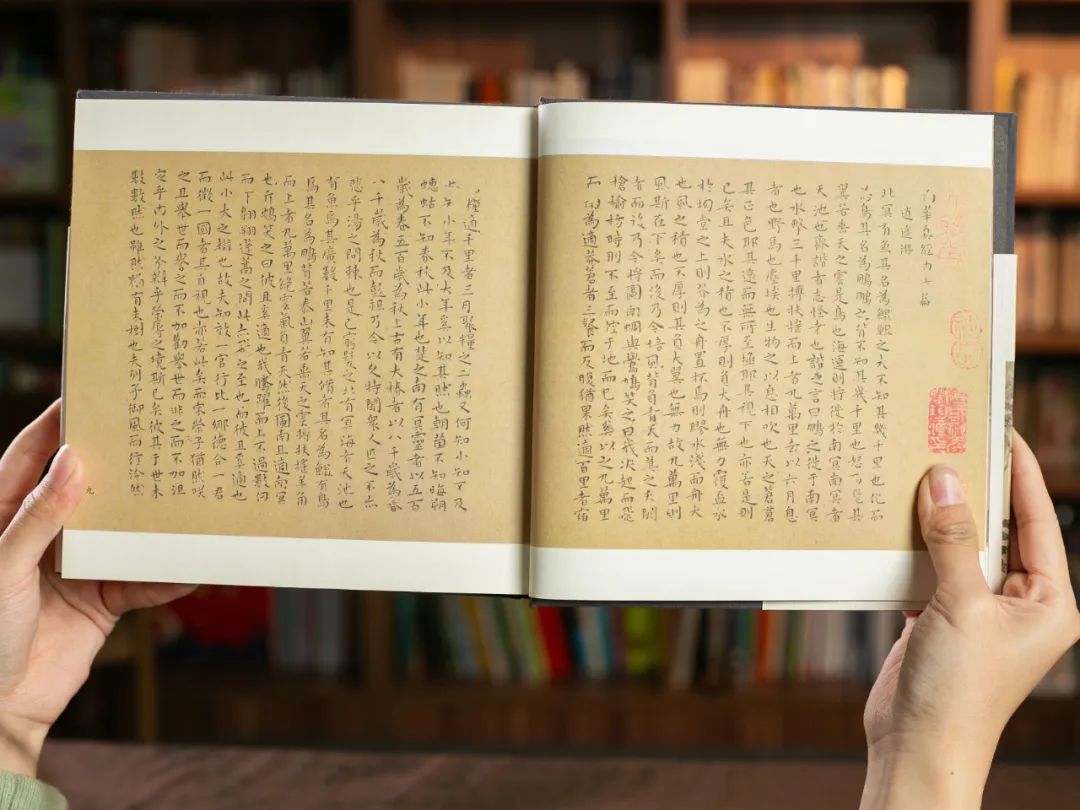 南華真經內七篇
逍遙遊
北冥有魚其名為鯤鯤之大不知其幾千里也化而
為鳥其名為鵬鵬之背不知其幾千里也怒而飛其
翼若垂天之雲是鳥也海運則將徙於南冥南冥者
天池也齊諧者志怪者也諧之言曰鵬之徙于南冥
也水擊三千里摶扶搖而上者九萬里去以六月息
者也野馬也塵埃也生物之以息相吹也天之蒼蒼
其正色耶其遠而無所至極耶其視下也亦若是則
已矣且夫水之積也不厚則負大舟也無力覆盃水
於坳堂之上則芥為之舟置杯焉則膠水淺而舟大
也風之積也不厚則其負大翼也無力故九萬里則
風斯在下矣而後乃今培風背負青天而莫之夭閼
者而後乃今將圖南蜩與鷽鳩笑之曰我決起而飛
槍榆枋時則不至而控于地而已矣奚以之九萬里
而南為適莽蒼者三飡而反腹猶果然適百里者宿
糧適千里者三月聚糧之二蟲又何知小知不及
小年不及大年奚以知其然也朝菌不知晦朔
蟪蛄不知春秋此小年也楚之南有冥靈者以五百
歲為春五百歲為秋上古有大椿者以八千歲為春
八千歲為秋而彭祖乃今以久特聞眾人匹之不亦
悲乎湯之問棘也是已窮髮之北有冥海者天池也
有魚焉其廣數千里未有知其脩者其名為鯤有鳥
焉其名為鵬背若泰山翼若垂天之雲摶扶搖羊角
而上者九萬里絕雲氣負青天然後圖南且適南冥
也斥鴳笑之曰彼且奚適也我騰躍而上不過數仞
而下翱翔蓬蒿之間此亦飛之至也而彼且奚適也
此小大之辯也故夫知效一官行比一鄉德合一君
而徵一國者其自視也亦若此矣而宋榮子猶然笑
之且舉世而譽之而不加勸舉世而非之而不加沮
定乎內外之分辯乎榮辱之境斯已矣彼其于世未
數數然也雖然猶有未樹也夫列子御風而行泠然
九